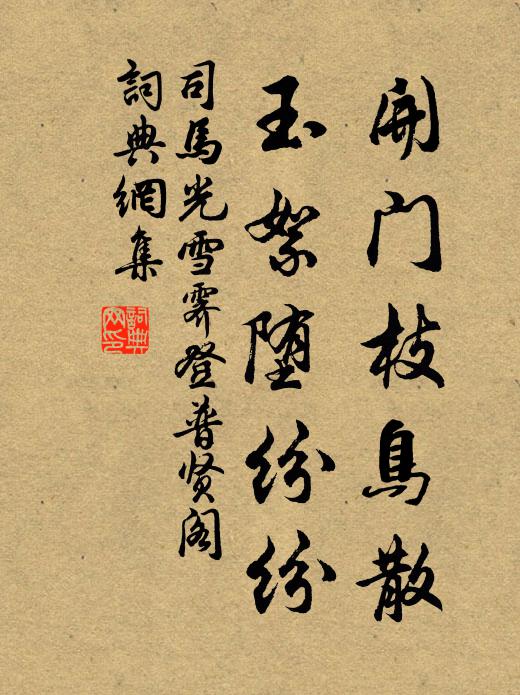 开门枝鸟散
玉絮堕纷纷
司马光雪霁登普贤阁
詞典網集
詞典网印